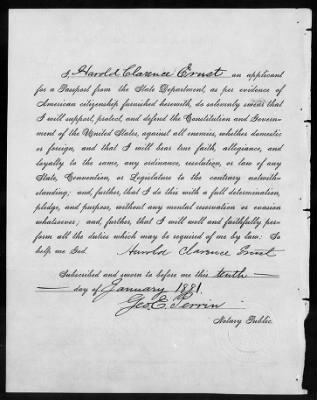 I, Harold Clarence Ernst an applicant
for a Passport from the State Department, as per evidence of
American citizenship furnished herewith, do solemnly swear that
I will support, protect, and defend the Constitution and Govern-
ment of the United States, against all enemies, whether domestic
or foreign, and that I will bear true faith, allegiance, and
loyalty to the same, any ordinance, resolution, or law of any
State, Convention, or Legislature to the contrary notwith-
standing; and, further, that I do this with a full determination,
pledge, and purpose, without any mental reservation or evasion
whatsoever; and, further, that I will well and faithfully per-
form all the duties which may be required of me by law: So
help me God. Harold Clarence Ernst
Subscribed and sworn to before me this tenth
day of January 1881.
Geo. E. Perrin
Notary Public.